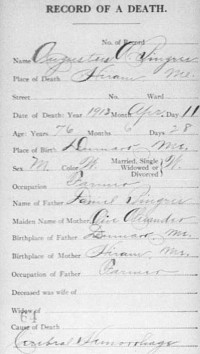 RECORD OF A DEATH.
No. of Record
Name Augustus
Place of Death Hiram Me.
Street No. Ward
Date of Death: Year 1912 Month Apr. Day 11
Age: Years 76 Months 6 Days 28
Place of Birth Denmark Me.
Sex M. Color W. Married, Single Widowed or Divorced W.
Occupation Farmer
Name of Father Daniel
Maiden Name of Mother Olive
Birthplace of Father Denmark Me.
Birthplace of Mother Hiram, Me.
Occupation of Father Farmer
Deceased was wife of
Widow of
Cause of Death
Cerebral Hemorrhage